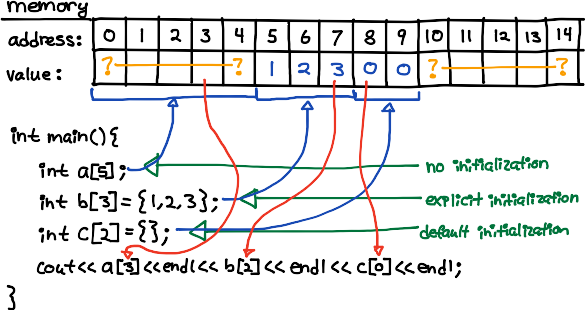 memory
address: 0 1 2 3 4 5 6 7 8 9 10 11 12 13 14
value: ? ? 1 2 3 0 0 ? ?
int main(){
int a[5]; no initialization
int b[3]={1,2,3}; explicit initialization
int c[2]={}; default initialization
cout<< a[3]<<endl<< b[2]<< endl<< c[0]<<endl;
}